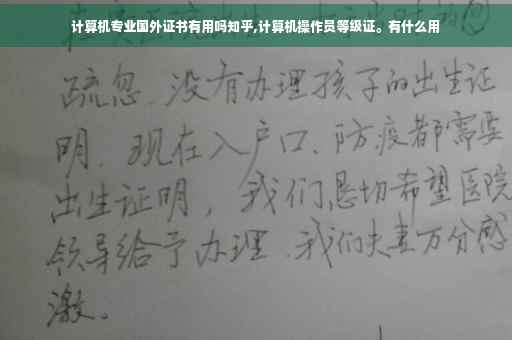 计算机专业国外证书有用吗知乎,计算机操作员等级证。有什么用
疏忽、没有办理孩子的出生证
明、现在入户口、防疫都需要
出生证明，我们恳切希望医院
领导给予办理、我们夫妻万分感
激。